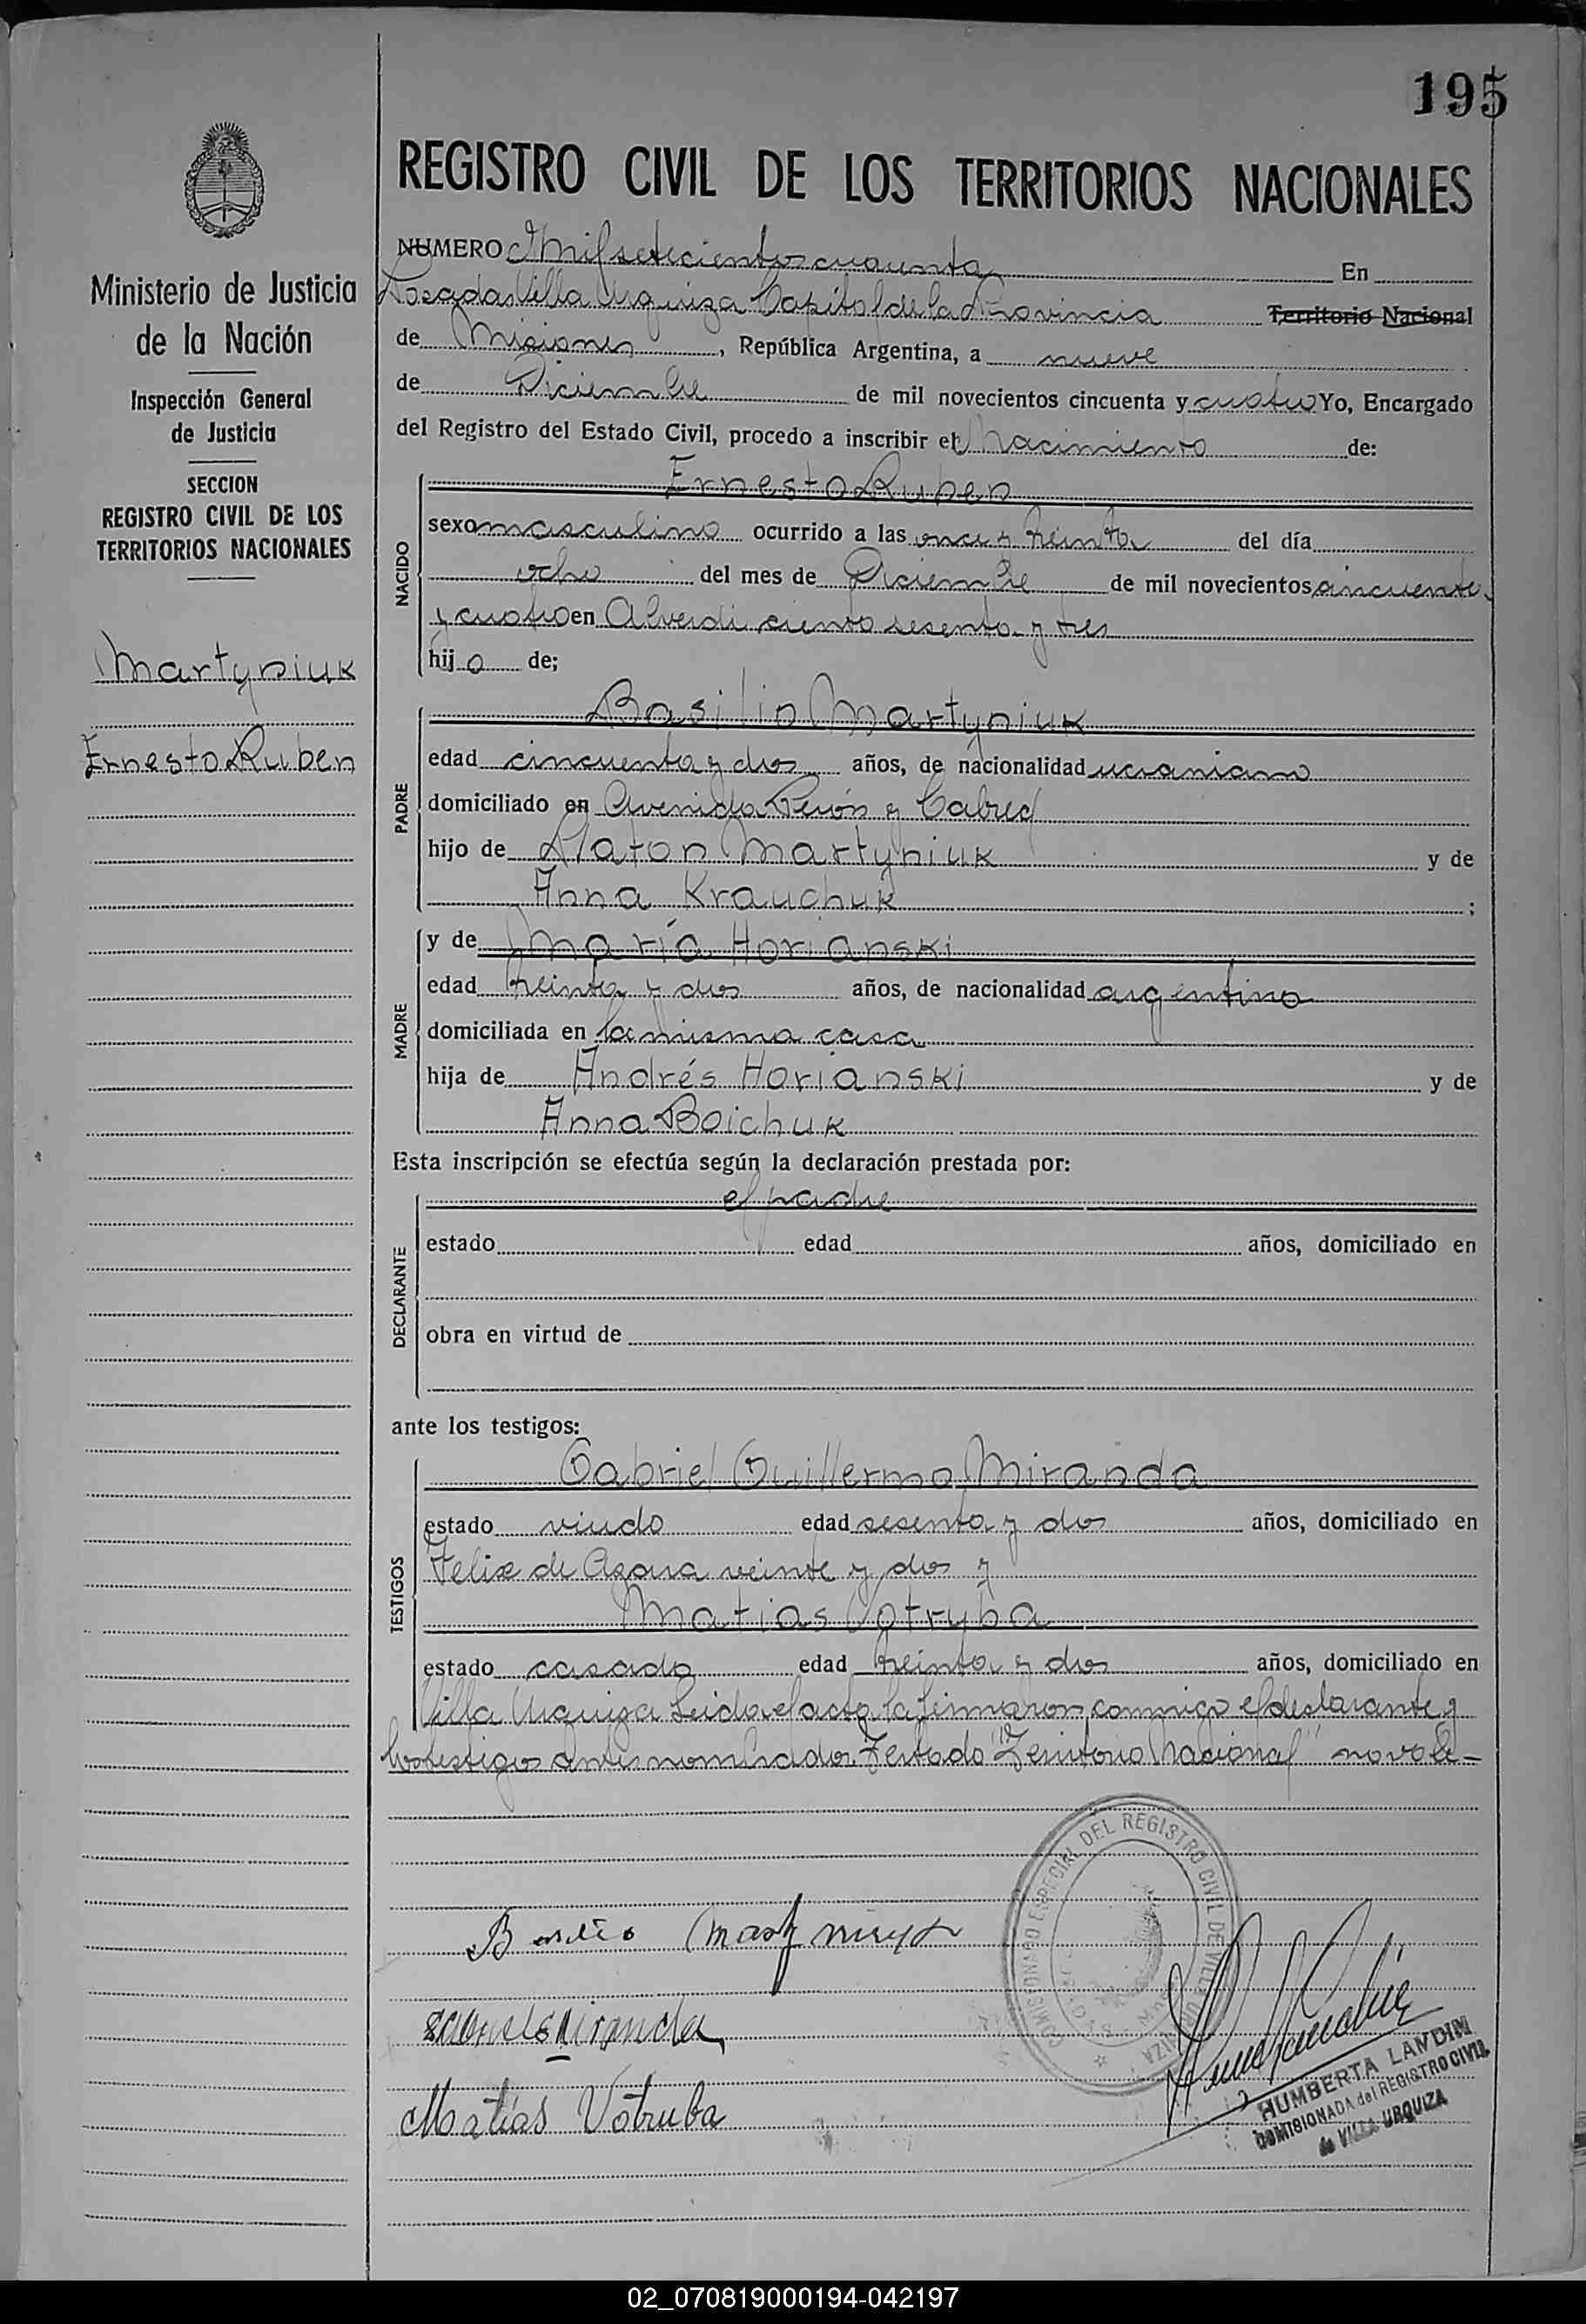 195
REGISTRO CIVIL DE LOS TERRITORIOS NACIONALES
Ministerio de Justicia
de la Nación
Inspección General
de Justicia
SECCION
REGISTRO CIVIL DE LOS
TERRITORIOS NACIONALES
Martyniuk
Ernesto Ruben
NUMERO Mil setecientos cuarenta En
Posadas Villa Urquiza Capital de la Provincia Territorio Nacional
de Misiones, República Argentina, a nueve
de Diciembre de mil novecientos cincuenta y cuatro Yo, Encargado
del Registro del Estado Civil, procedo a inscribir el Nacimiento de:
NACIDO
Ernesto Ruben
sexo masculino ocurrido a las once y treinta del día
ocho del mes de Diciembre de mil novecientos cincuenta
y cuatro en Alverdi ciento sesenta y tres
hijo de;
PADRE
Basilio Martyniuk
edad cincuenta y dos años, de nacionalidad ucraniano
domiciliado en Avenida Perón y Cabred
hijo de Platon Martyniuk y de
Anna Krauchuk ;
MADRE
y de María Horianski
edad treinta y dos años, de nacionalidad argentina
domiciliada en la misma casa
hija de Andrés Horianski y de
Anna Boichuk
Esta inscripción se efectúa según la declaración prestada por:
DECLARANTE
el padre
estado edad años, domiciliado en
obra en virtud de
ante los testigos:
TESTIGOS
Gabriel Guillermo Miranda
estado viudo edad sesenta y dos años, domiciliado en
Felix de Azara veinte y dos y
Matias Votryba
estado casado edad treinta y dos años, domiciliado en
Villa Urquiza Leida el acta la firmaron conmigo el declarante y
los testigos antes nombrados. Testado "Territorio Nacional" no vale-
COMISIONADO ESPECIAL DEL REGISTRO CIVIL DE VILLA URQUIZA
Basilio Martyniuk
Miranda
Matias Votruba
HUMBERTA LANDIN
COMISIONADA del REGISTRO CIVIL
de VILLA URQUIZA
02_070819000194-042197